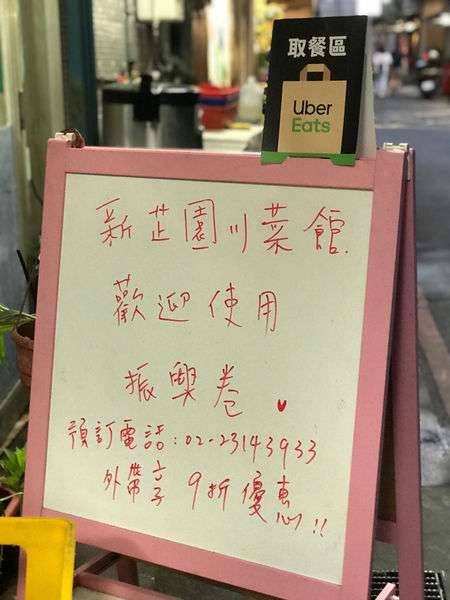 取餐區
Uber
Eats
新芷園川菜館
歡迎使用
振興卷
預訂電話：02-23143933
外帶享 9折優惠!!